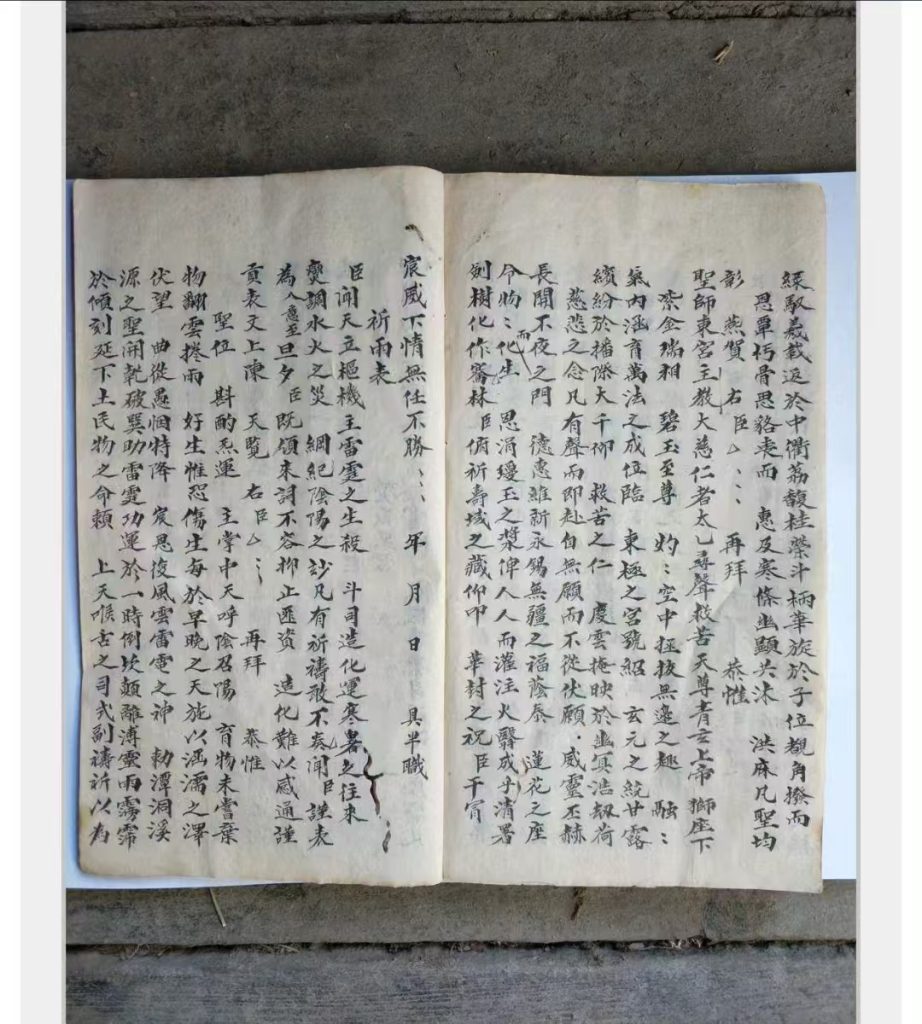 綵馭歲載返於中衢荔馥桂縈斗柄華旋於子位觀角撥而
恩覃朽骨思貉喪而　惠及寒條幽顯共沐　洪麻凡聖均
彰　燕賀　右臣厶：：　再拜　恭惟
聖師東宮主教大慈仁者太乙尋聲救苦天尊青玄上帝獅座下
紫金瑞相　碧玉至尊　灼：空中拯拔無邊之趣　融：
氣內涵育萬法之成位臨　東極之宮號紹　玄元之統甘露
繽紛於播際大千仰　救苦之仁　慶雲掩映於幽冥浩劫荷
慈悲之念凡有聲而即赴自無願而不從伏願　威靈丕赫
長開不夜之門　德惠維新永錫無疆之福蔭泰　蓮花之座
令物：而化生　思涓瓊玉之漿俾人人而灌注火翳成乎清署
劍樹化作騫林　臣俯祈壽域之藏仰叩　華封之祝　臣干冒
宸威下情無任不勝：：　年　月　日　具半職
祈雨表
臣聞天立樞機主雷霆之生殺　斗司造化運寒暑之往來
燮調水火之災　綱紀陰陽之妙凡有祈禱敢不奏聞　臣謹表
為入意至旦夕　臣既領來詞不容抑止匪資　造化難以感通謹
貢表文上陳　天覽　右臣厶：：　再拜　恭惟
聖位　斟酌炁運　主掌中天呼陰召陽　育物未嘗棄
物翻雲捲雨　好生惟恐傷生每於早晚之天施以涵濡之澤
伏望　曲從愚悃特降　宸恩俊風雲雷電之神　勅潭洞溪
源之聖開乾破巽助雷霆功運於一時倒坎顛離溥靈雨霶霈
於傾刻延下土民物之命賴　上天喉舌之司式副禱祈以為